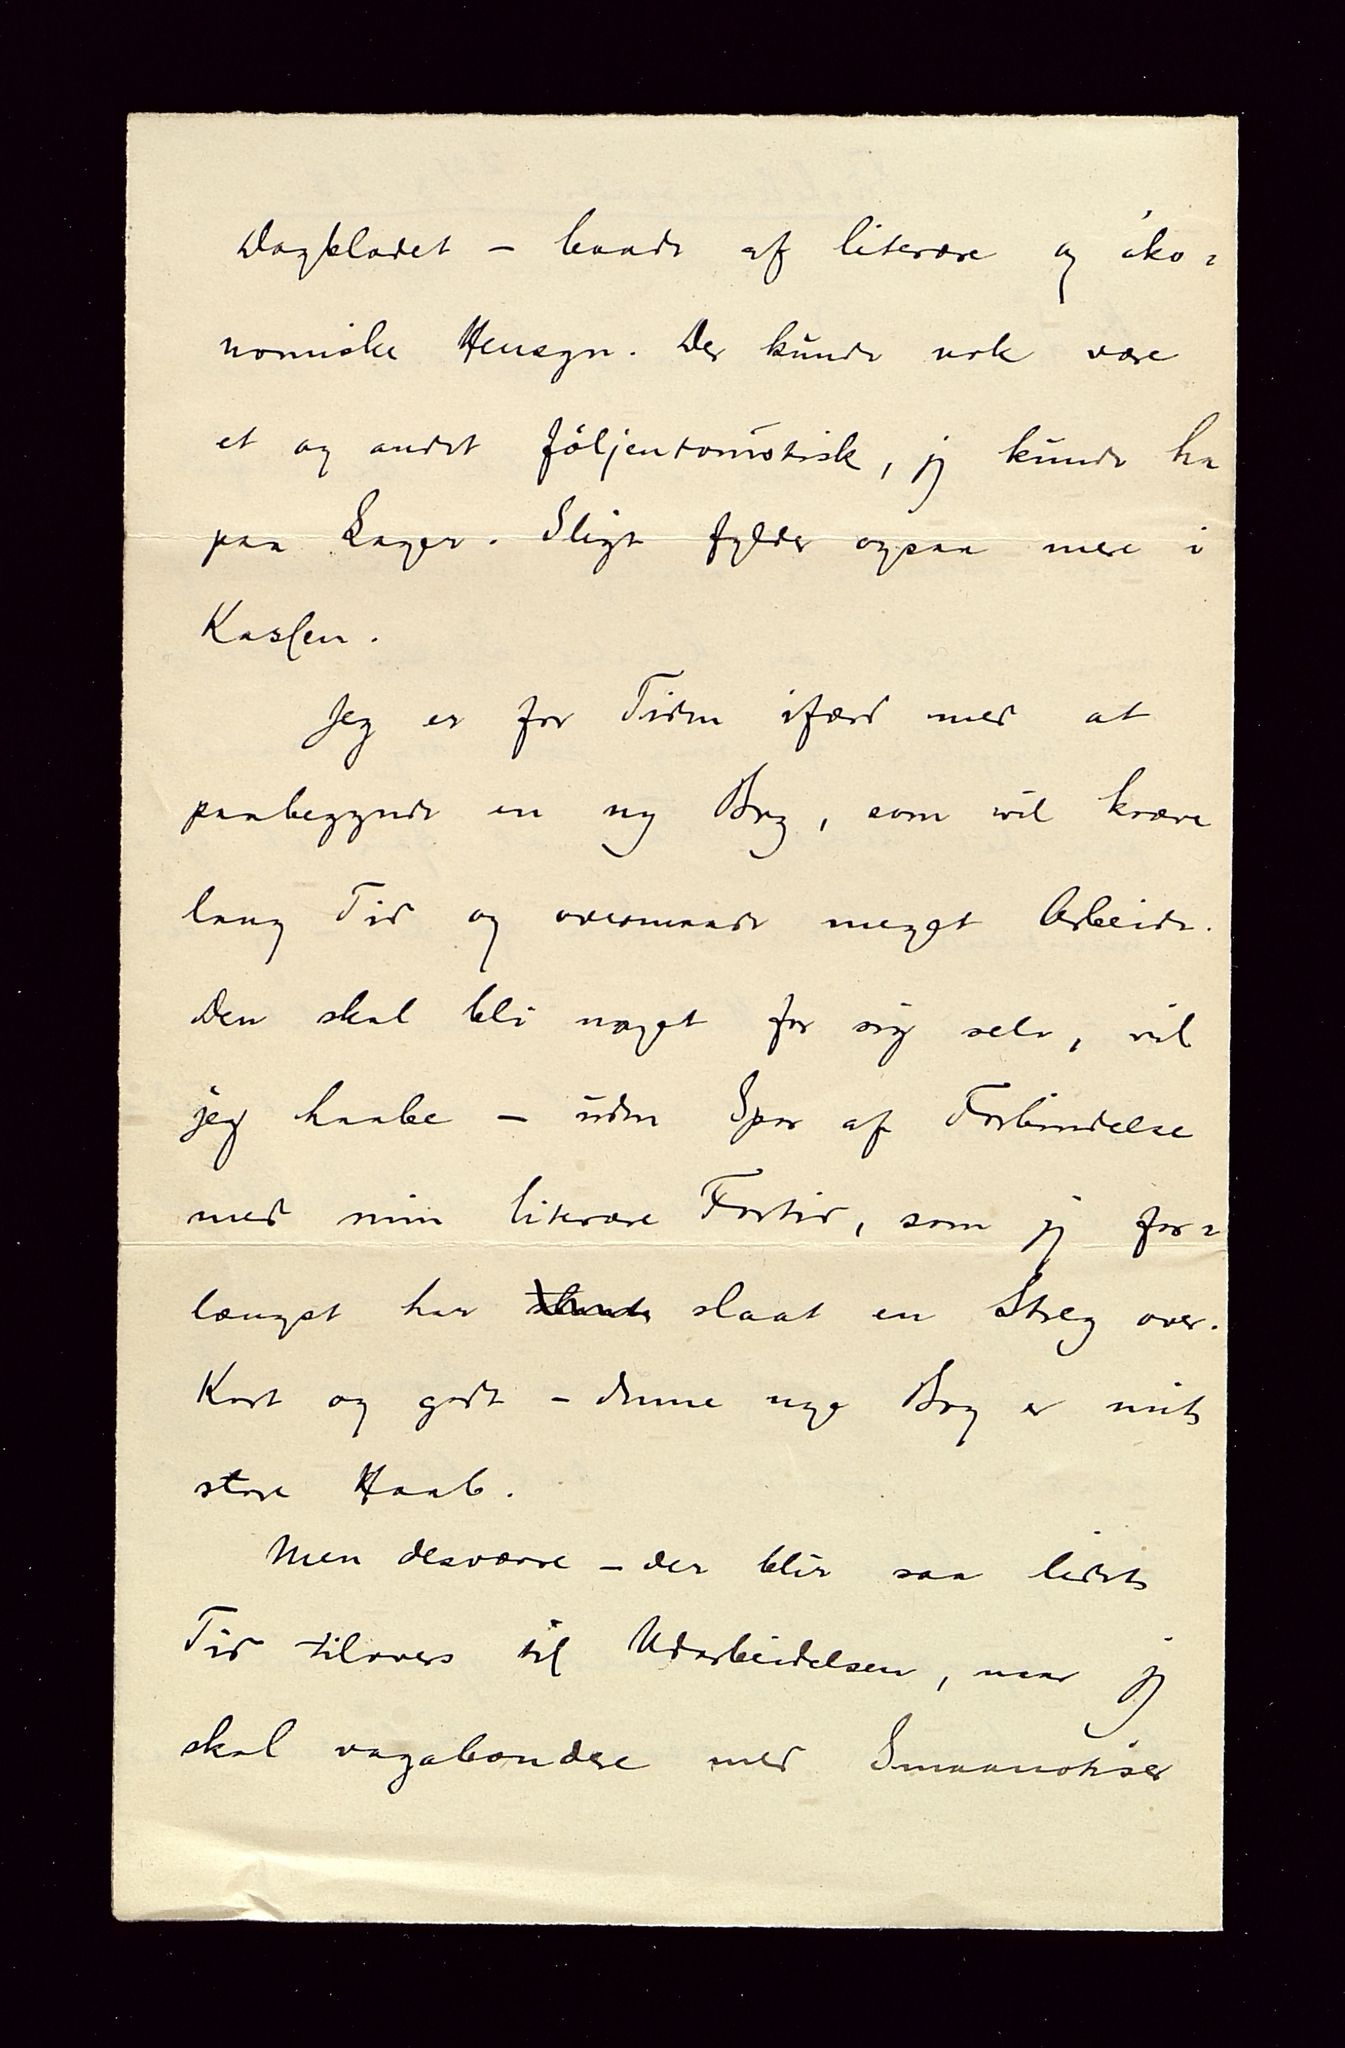 Dagbladet – baade af literære og öko-
nomiske Hensyn. Der kunde nok være
et og andet följentonistisk, jeg kunde ha
paa Lager. Sligt fylder ogsaa mere i
Kassen.
Jeg er for Tiden ifærd med at
paabegynde en ny Bog, som vil kræve
lang Tid og overmaade meget Arbeide.
Den skal bli noget for sig selv, vil
jeg haabe – uden Spor af Forbindelse
med min literære Fortid, som jeg for-
længst har slaat en Streg over.
Kort og godt – denne nye Bog er mit
store Haab.
Men desværre – der blir saa lidet
Tid tilovers til Udarbeidelsen, naar jeg
skal vagabondere med Smaanotiser